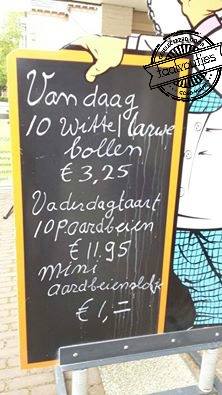 Vandaag
10 witte/tarwe
bollen
€ 3,25
Vadsdagtaart
10Paardbeien
€ 11.95
mini
aardbeienslofje
€ 1,=
taalvoutjes